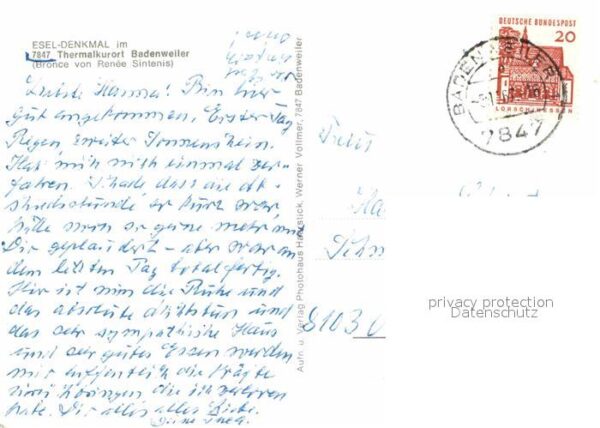 ESEL-DENKMAL im
7847 Thermalkurort Badenweiler
(Bronce von Renée Sintenis)
Liebste Hanna! Bin hier
gut angekommen, Erster Tag
Regen, zweiter Sonnenschein.
Hab mich nicht einmal ver-
fahren. Schade dass die Ab-
schiedsstunde so kurz war,
hätte noch so gerne mehr mit
Dir geplaudert - aber war an
dem letzten Tag total fertig.
Hier ist nun die Ruhe und
das absolute Nichtstun und
das sehr sympathische Haus
und das gute Essen werden
mir hoffentlich die Kräfte
zurückbringen die ich verloren
habe. Dir alles alles Liebe.
Deine
Aufn. u. Verlag Photohaus Hanstick, Werner Vollmer, 7847 Badenweiler
DEUTSCHE BUNDESPOST
20
LORSCH/HESSEN
BADENWEILER
7847
Frau
Ha
Schn
8103 O
privacy protection
Datenschutz